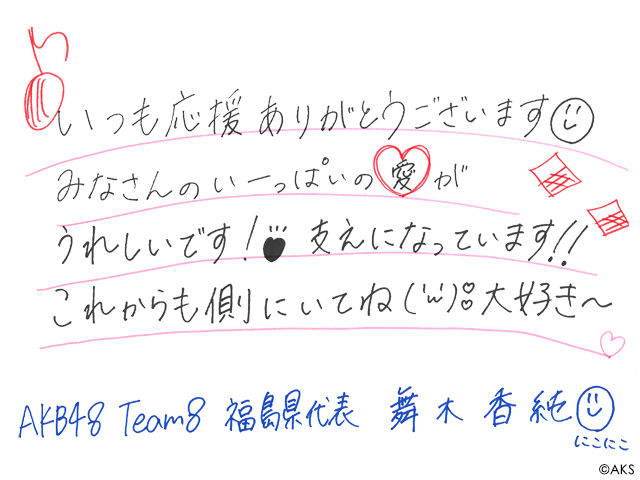 いつも応援ありがとうございます
みなさんのいーっぱいの愛が
うれしいです!支えになっています!!
これからも側にいてね('ω')大好き〜
AKB48 Team8 福島県代表 舞木香純
にこにこ
©AKS